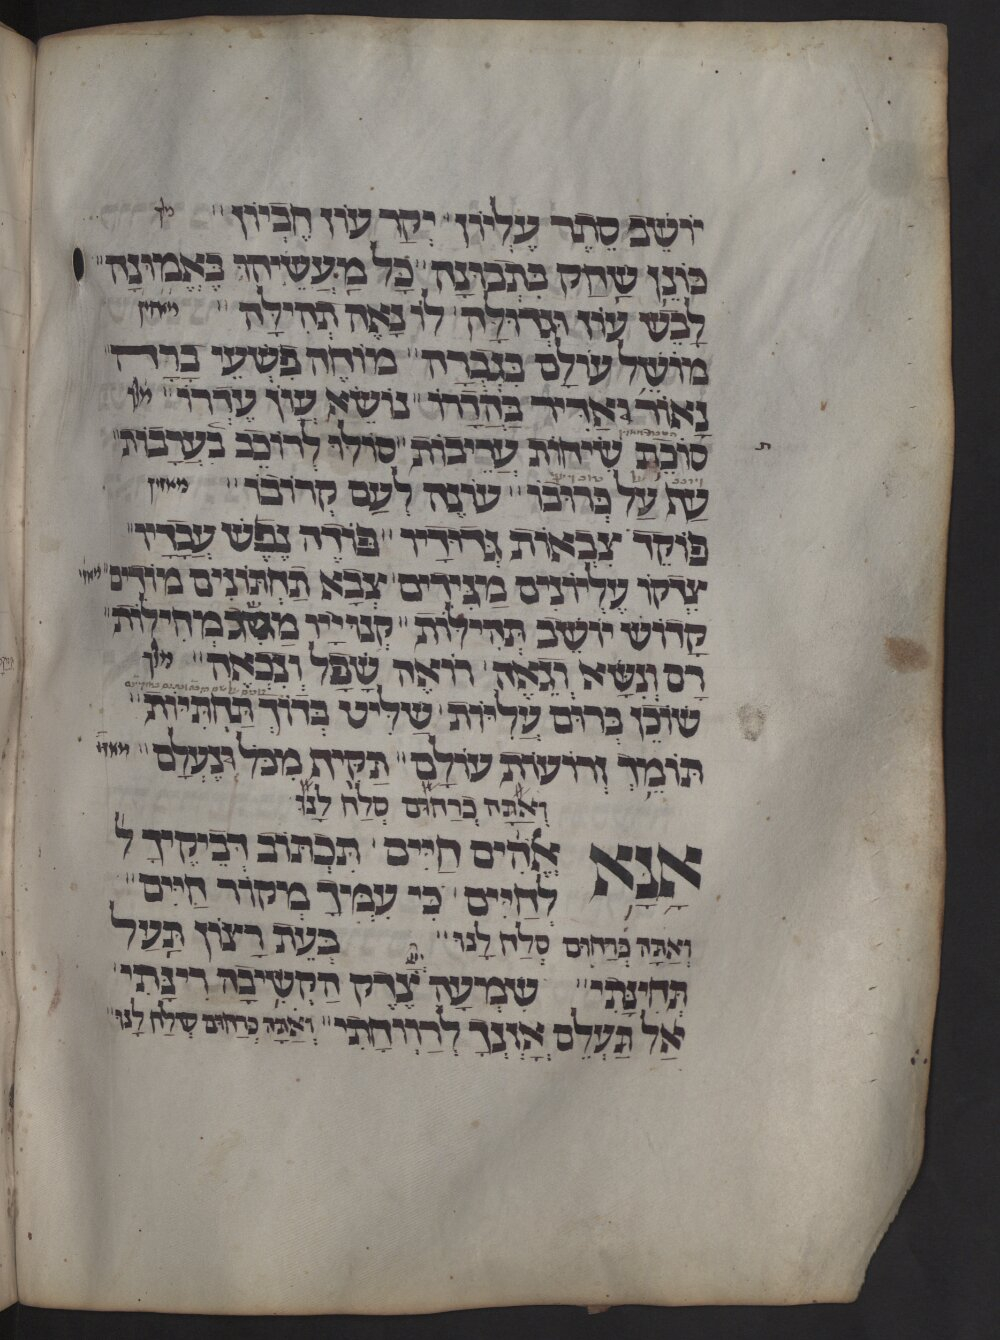 יוֹשֵׁב סֵתֶר עֶלְיוֹן יְקַר עוֹז חֶבְיוֹן מלך
כּוֹנֵן שַׁחַק בִּתְמוּנָה כָּל מַעֲשֵׂיהוּ בֶּאֱמוּנָה
לָבַשׁ עוֹז וּגְדוּלָּה לוֹ נָאֶה תְּהִילָּה מאזין
מוֹשֵׁל עוֹלָם בִּגְבֻרָה מוֹחֶה פִּשְׁעֵי בָרָה
נָאוֹר וְאַדִּיר בַּהֲדָרוֹ נוֹשֵׂא עֲוֹן עֶדְרוֹ מלך
סוֹכֵת שִׂיחוֹת עֲרֵיבוֹת סוֹלּוּ לָרוֹכֵב בָּעֲרָבוֹת
עָהּ עַל כְּרוּבוֹ עוֹנֶה לְעַם קְרוֹבוֹ מאזין
פּוֹקֵד צִבְאוֹת גְּדוּדָיו פּוֹדֶה נֶפֶשׁ עֲבָדָיו
צִדְקוֹ עֶלְיוֹנִים מַגִּידִים צְבָא תַחְתּוֹנִים מוֹדִים מאזין
קָדוֹשׁ יוֹשֵׁב תְּהִילּוֹת קִנּוּיָיו מְחִילּוֹת
רָם וְנִשָּׂא וְגֵאֶה רוֹאֶה שָׁפָל וְנִבְאֶה מלך
שׁוֹכֵן בְּרוּם עֲלִיּוֹת שַׁלִּיט בְּדוֹךְ תַּחְתִּיּוֹת
תּוֹמֵךְ זְרוֹעוֹת עוֹלָם תַּקִּיף מִכֹּל נֶעְלָם מאזין
וְאַתָּה כְּרַחוּם סְלַח לָנוּ
אָנָּא אֱלֹהִים חַיִּים תִּכְתּוֹב דְּבֵיקֶיךָ ל
לְחַיִּים כִּי עִמְּךָ מְקוֹר חַיִּים
וְאַתָּה כְּרַחוּם סְלַח לָנוּ בְּעֵת רָצוֹן תַּעַל
תְּחִינָּתִי שִׁמְעָה צֶדֶק הַקְשִׁיבָה רִינָּתִי
אַל תַּעְלֵם אָזְנְךָ לְרַוְוחָתִי וְאַתָּה כְּרַחוּם סְלַח לָנוּ